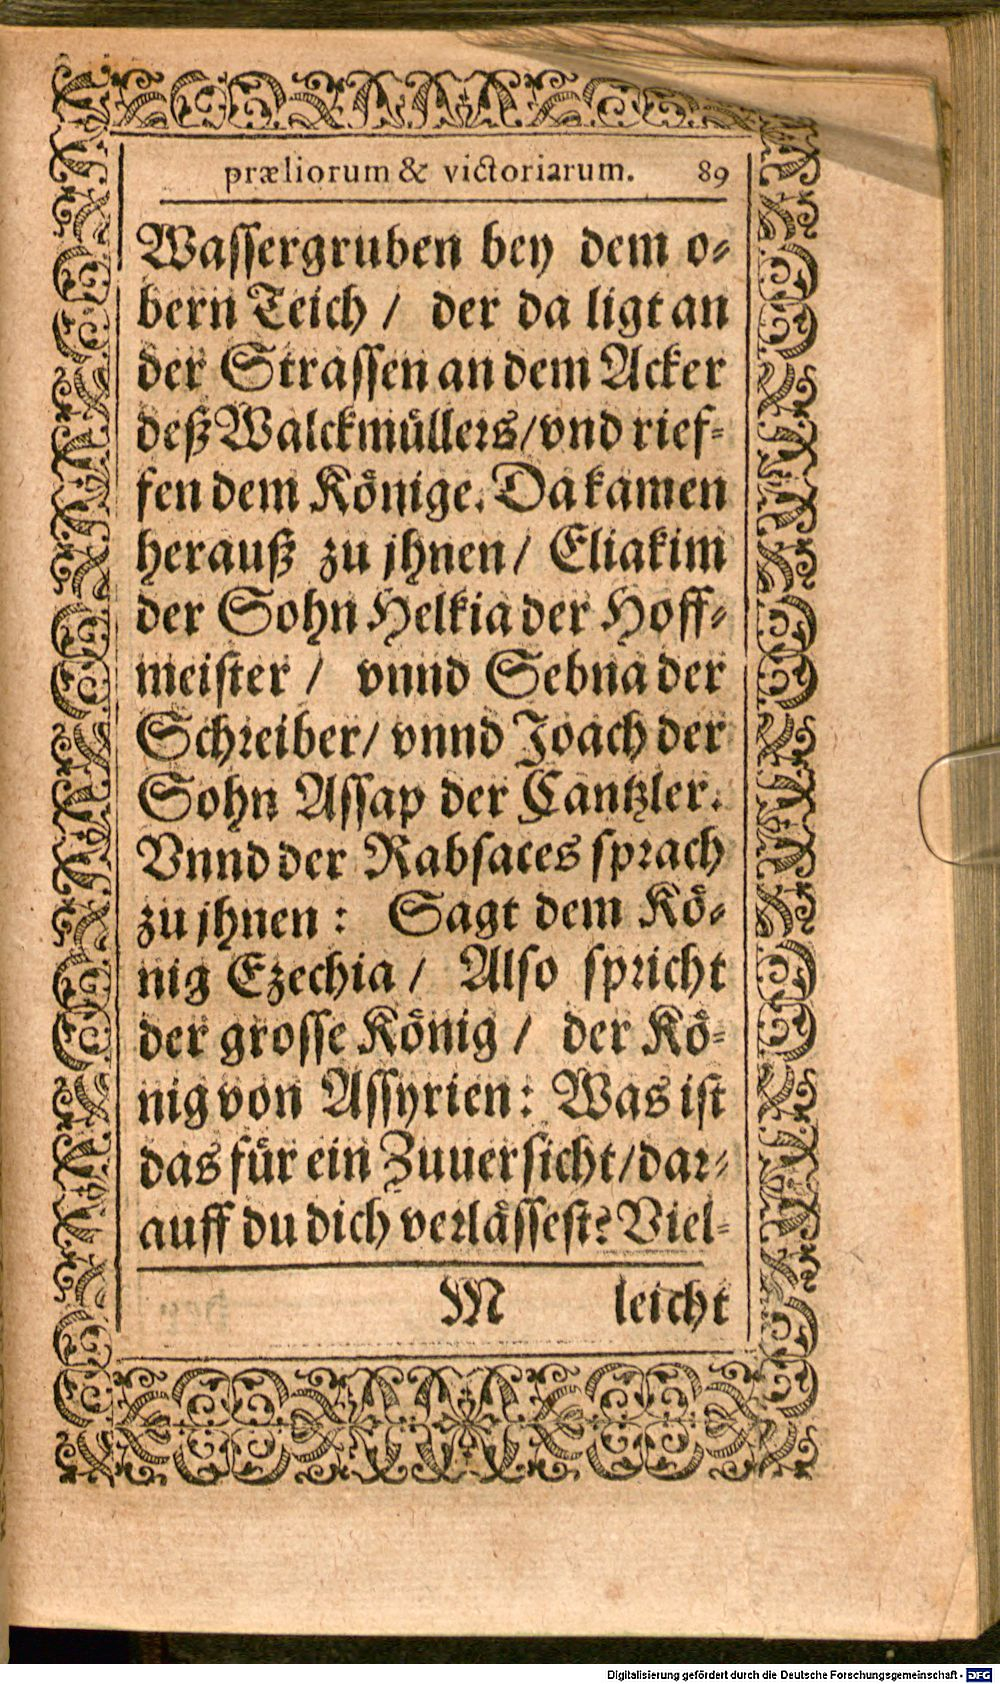 præliorum & victoriarum. 89
Wassergruben bey dem o-
bern Teich / der da ligt an
der Strassen an dem Acker
deß Walckmüllers / vnd rief-
fen dem Könige. Da kamen
herauß zu jhnen / Eliakim
der Sohn Helkia der Hoff-
meister / vnnd Sebna der
Schreiber / vnnd Joach der
Sohn Assap der Cantzler.
Vnnd der Rabsaces sprach
zu jhnen : Sagt dem Kö-
nig Ezechia / Also spricht
der grosse König / der Kö-
nig von Assyrien : Was ist
das für ein Zuuersicht / dar-
auff du dich verlässest? Viel-
M leicht
Digitalisierung gefördert durch die Deutsche Forschungsgemeinschaft - DFG